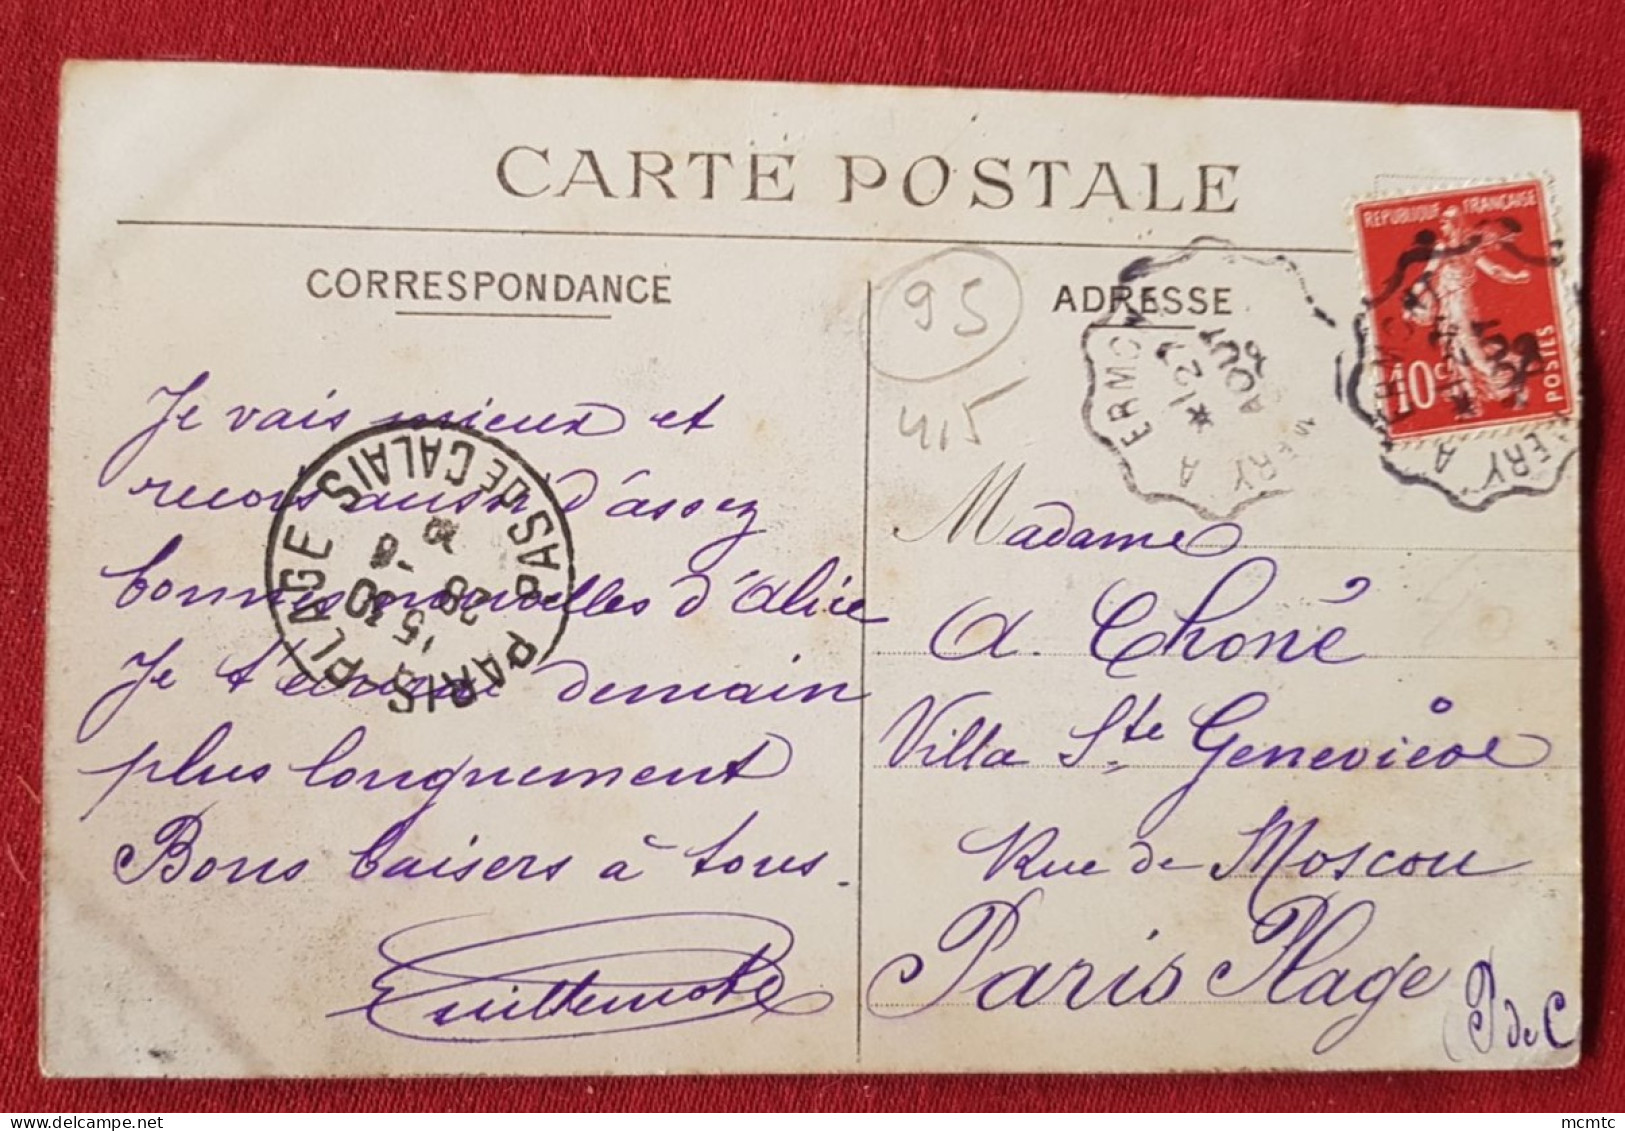 CARTE POSTALE
CORRESPONDANCE
ADRESSE
95
415
REPUBLIQUE FRANÇAISE
10c
POSTES
ERMONT A MERY
27 AOUT
ERMONT A MERY
27 AOUT
PARIS-PLAGE PAS DE CALAIS
15 30
28 - 8
Je vais mieux et
reçois aussi d'assez
bonnes nouvelles d'Alice
Je t'écrirai demain
plus longuement
Bons baisers à tous.
Madame
A. Choné
Villa Ste Geneviève
Rue de Moscou
Paris Plage
(P de C
mcmtc